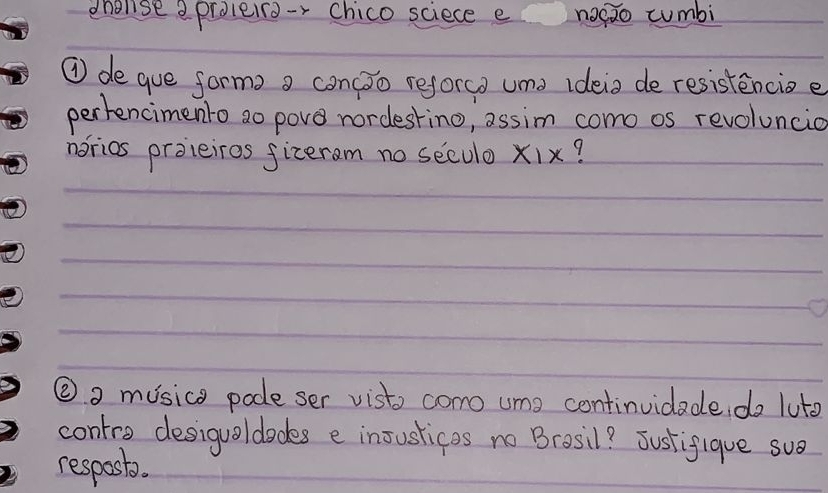 analise a praieira → Chico sciece e nação zumbi
① de que forma a canção reforça uma ideia de resistência e
pertencimento ao povo nordestino, assim como os revoluncio
nários praieiros fizeram no século XIX?
② a música pode ser vista como uma continuidade da luta
contra desigualdades e injustiças no Brasil? Justifique sua
resposta.